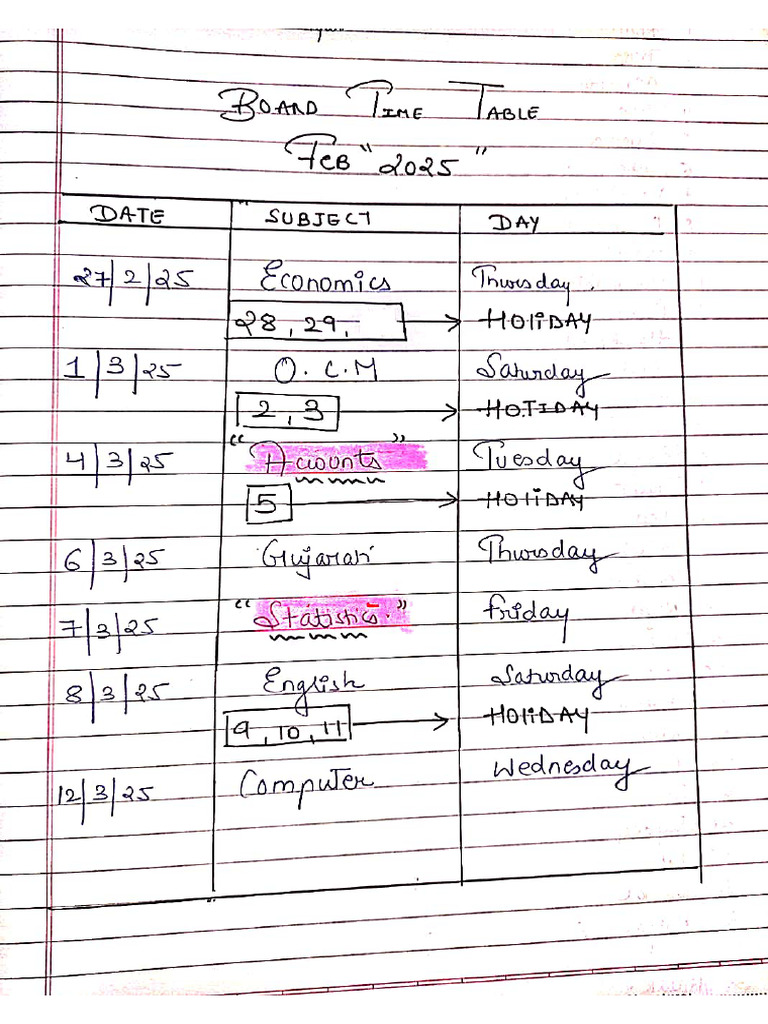 BOARD TIME TABLE
FEB "2025"
DATE SUBJECT DAY
27/2/25 Economics Thursday.
28, 29, → HOLIDAY
1/3/25 O.C.M Saturday
2, 3 → HOLIDAY
4/3/25 "Accounts" Tuesday
5 → HOLIDAY
6/3/25 Gujarati Thursday
7/3/25 "Statistics." friday
8/3/25 English Saturday
9, 10, 11 → HOLIDAY
12/3/25 Computer Wednesday